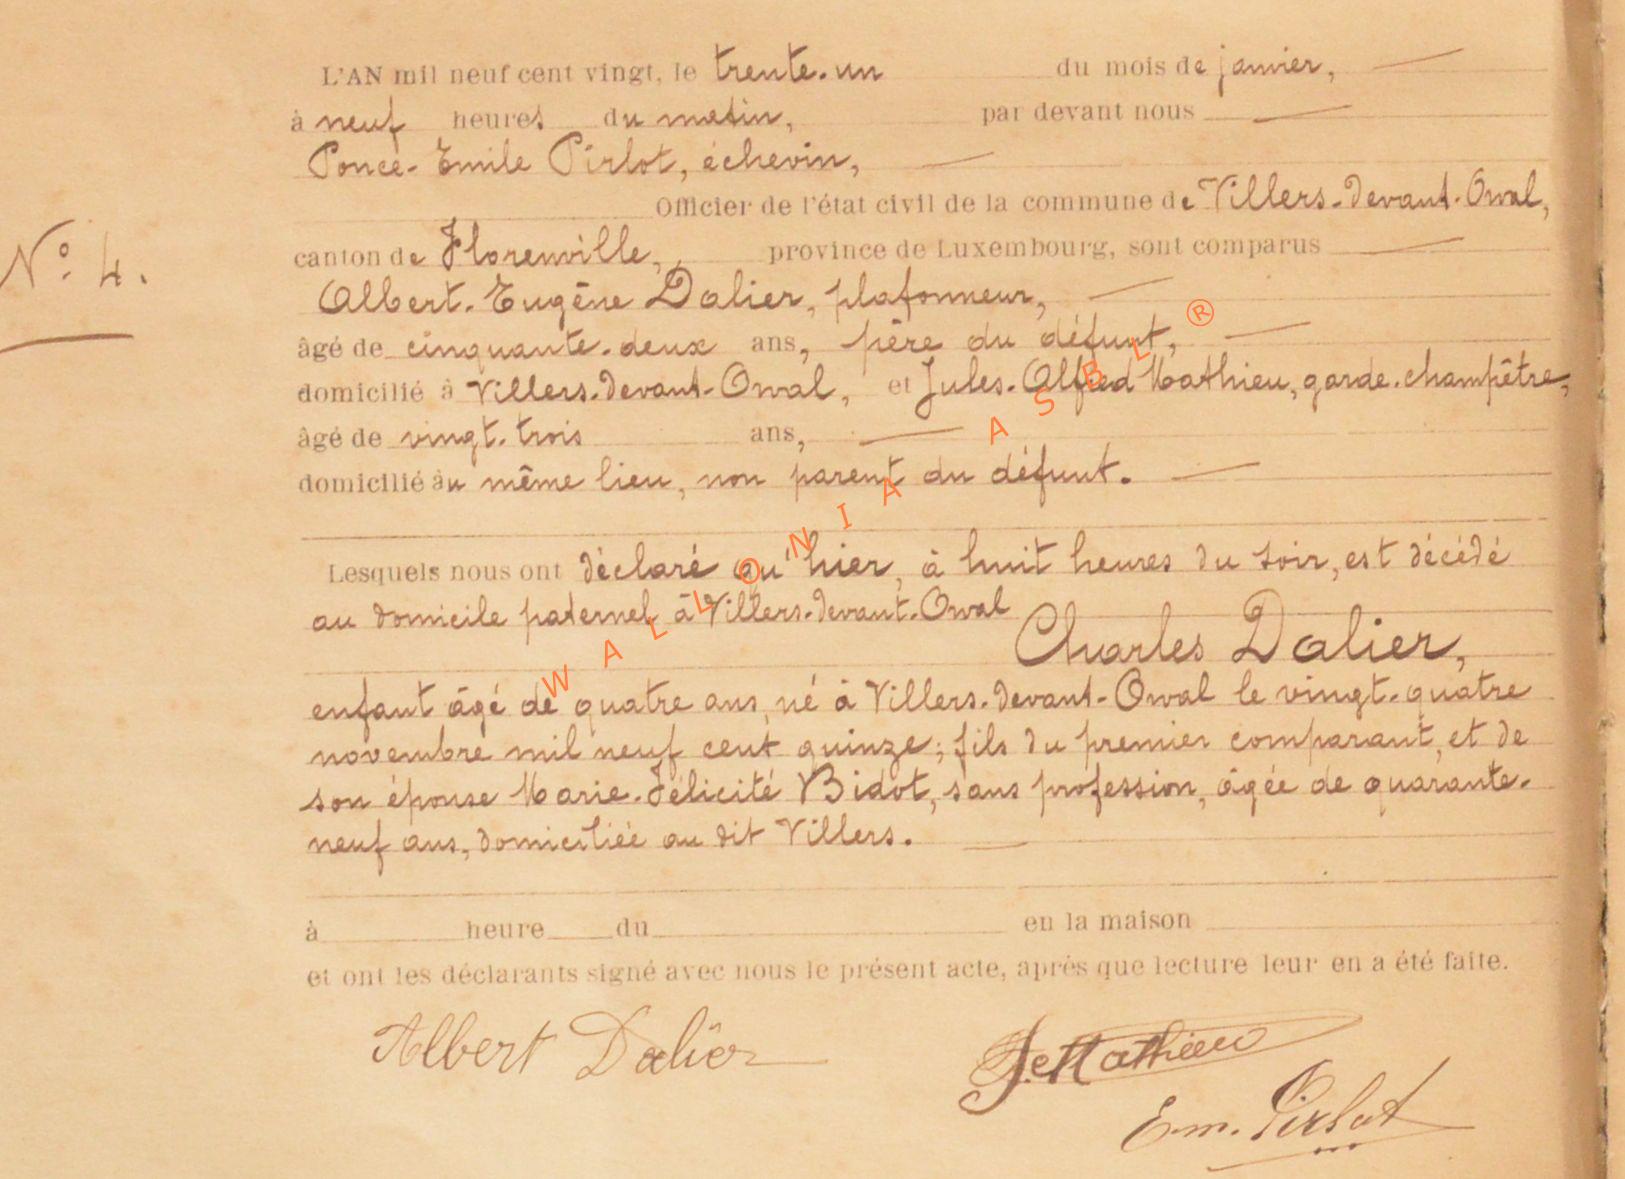 L'AN mil neuf cent vingt, le trente-un du mois de janvier,
à neuf heures du matin, par devant nous
Ponce-Emile Pirlot, échevin,
Officier de l'état civil de la commune de Villers-devant-Orval,
N° 4.
canton de Florenville, province de Luxembourg, sont comparus
Albert-Eugène Dalier, plafonneur,
âgé de cinquante-deux ans, père du défunt,
domicilié à Villers-devant-Orval, et Jules-Alfred Mathieu, garde-champêtre,
âgé de vingt-trois ans,
domicilié au même lieu, non parent du défunt.
Lesquels nous ont déclaré qu'hier, à huit heures du soir, est décédé
au domicile paternel à Villers-devant-Orval
Charles Dalier,
enfant âgé de quatre ans, né à Villers-devant-Orval le vingt-quatre
novembre mil neuf cent quinze; fils du premier comparant, et de
son épouse Marie-Félicité Bidot, sans profession, âgée de quarante-
neuf ans, domiciliée au dit Villers.
à heure du en la maison
et ont les déclarants signé avec nous le présent acte, après que lecture leur en a été faite.
Albert Dalier
J. Mathieu
Em. Pirlot
WALLONIA ASBL ®